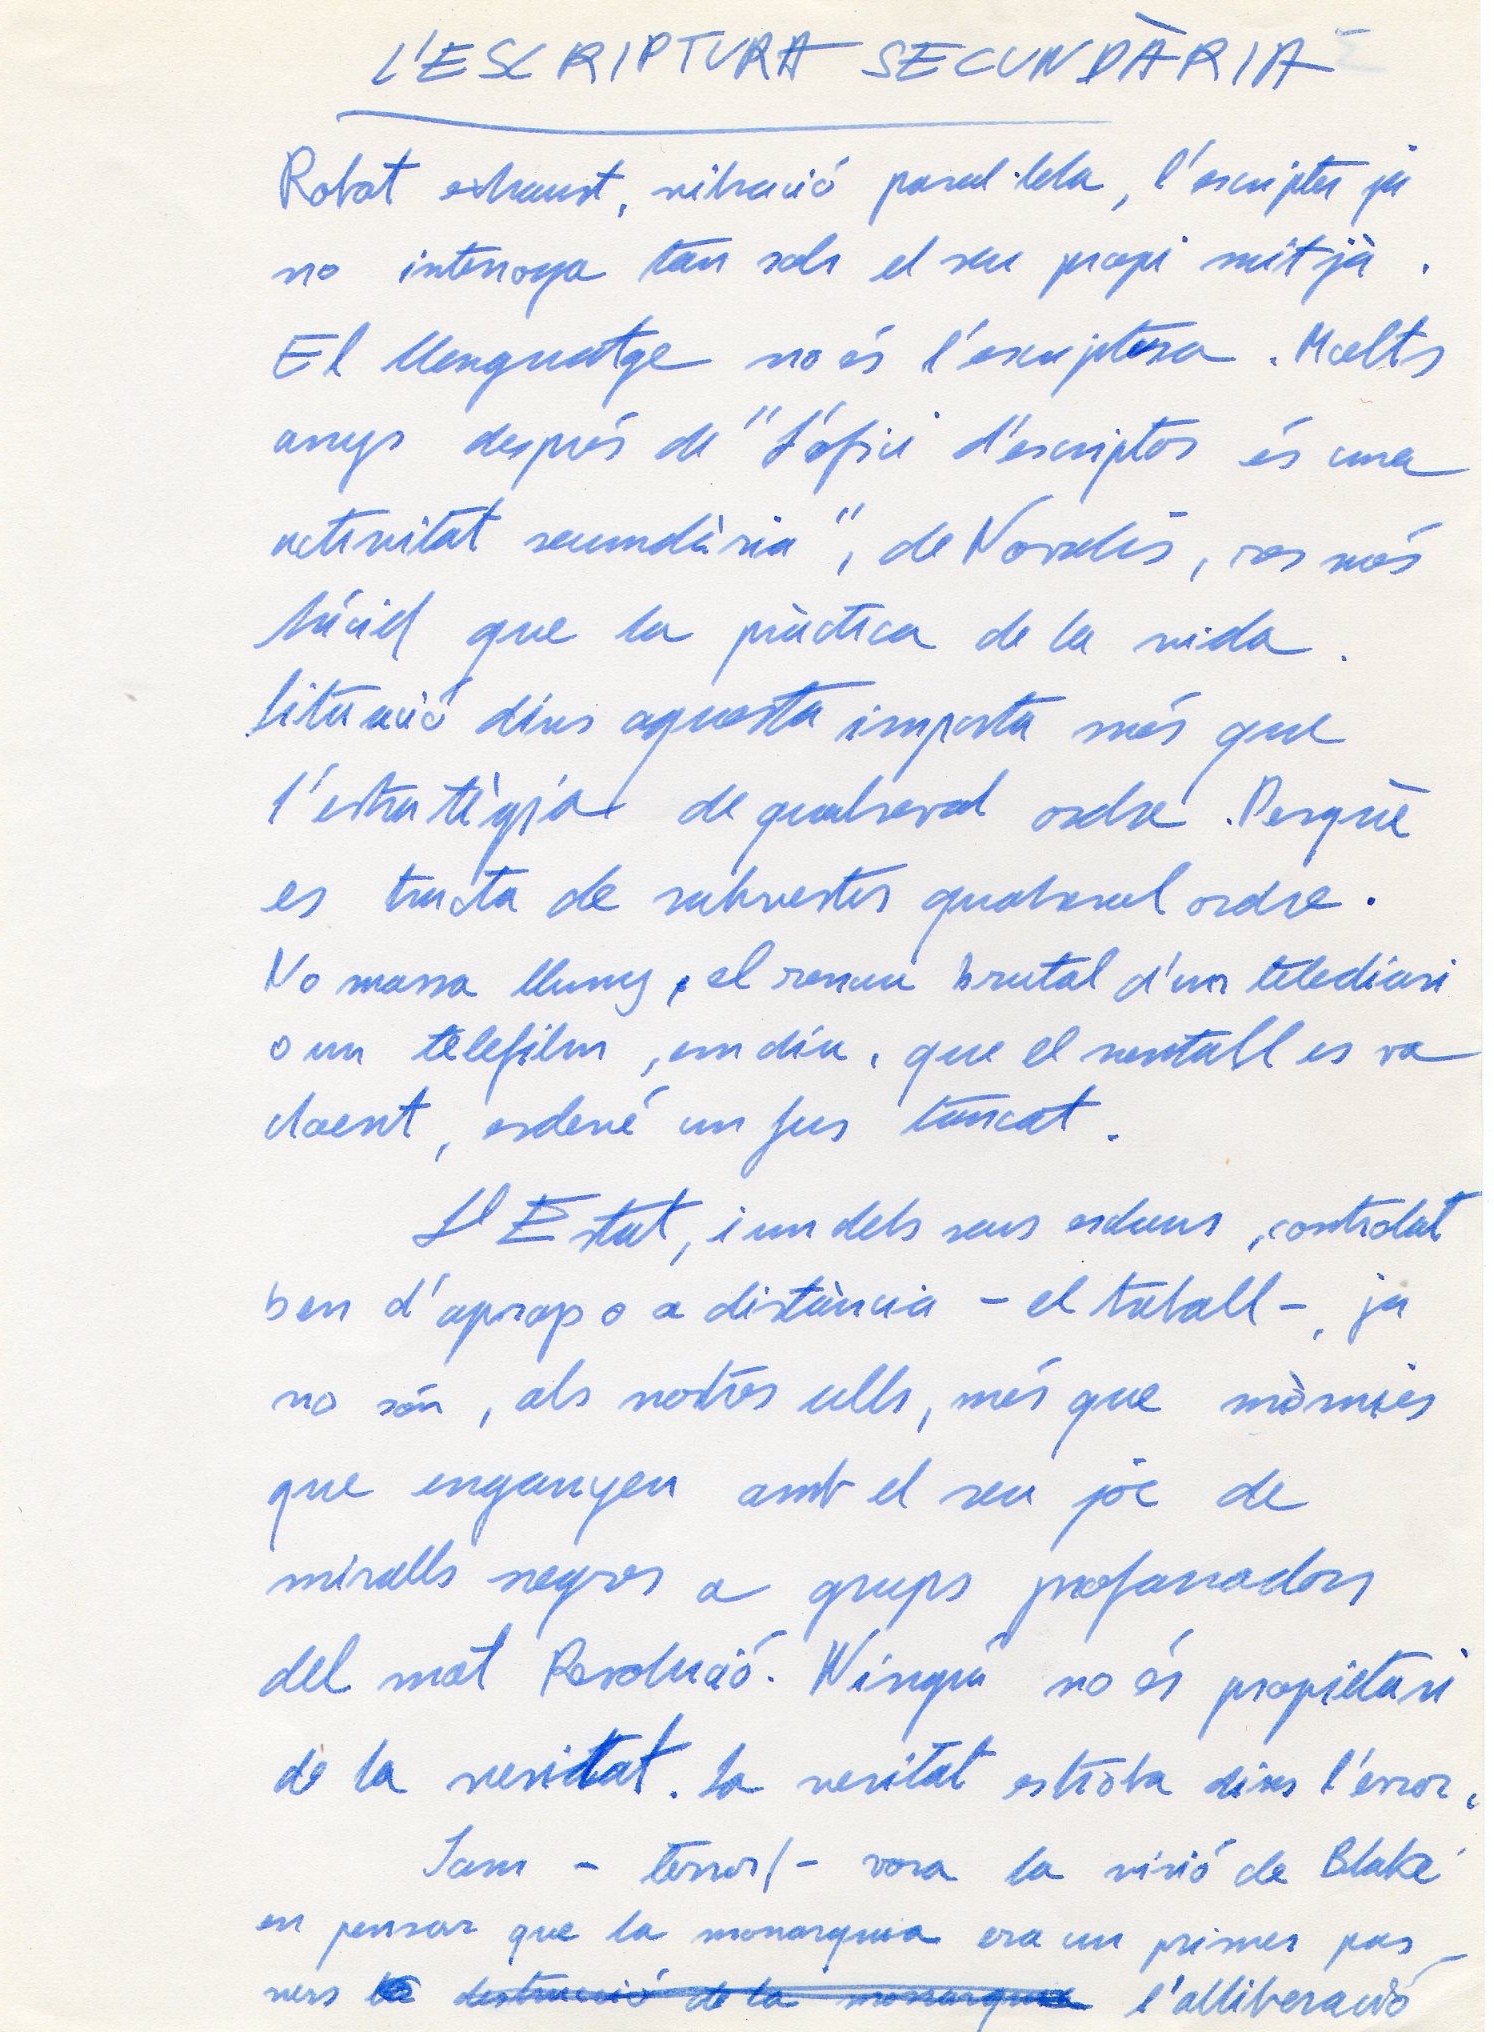 L'ESCRIPTURA SECUNDÀRIA
Robat exhaust, vibració paral·lela, l'escriptor ja
no interroga tan sols el seu propi mitjà.
El llenguatge no és l'escriptura. Molts
anys després de "L'ofici d'escriptor és una
activitat secundària", de Novalis, res més
lúcid que la pràctica de la vida.
Situació dins aquesta importa més que
l'estratègia de qualsevol ordre. Perquè
es tracta de subvertir qualsevol ordre.
No massa lluny, el renou brutal d'un telediari
o un telefilm, em diu, que el ventall es va
cloent, esdevé un fus tancat.
L'Estat, i un dels seus esclaus, controlat
ben d'aprop o a distància - el treball -, ja
no són, als nostres ulls, més que mòmies
que enganyen amb el seu joc de
miralls negres a grups profanadors
del mot Revolució. Ningú no és propietari
de la veritat. La veritat es troba dins l'error.
Som - terror! - vora la visió de Blake
en pensar que la monarquia era un primer pas
vers la destrucció de la monarquia l'alliberació